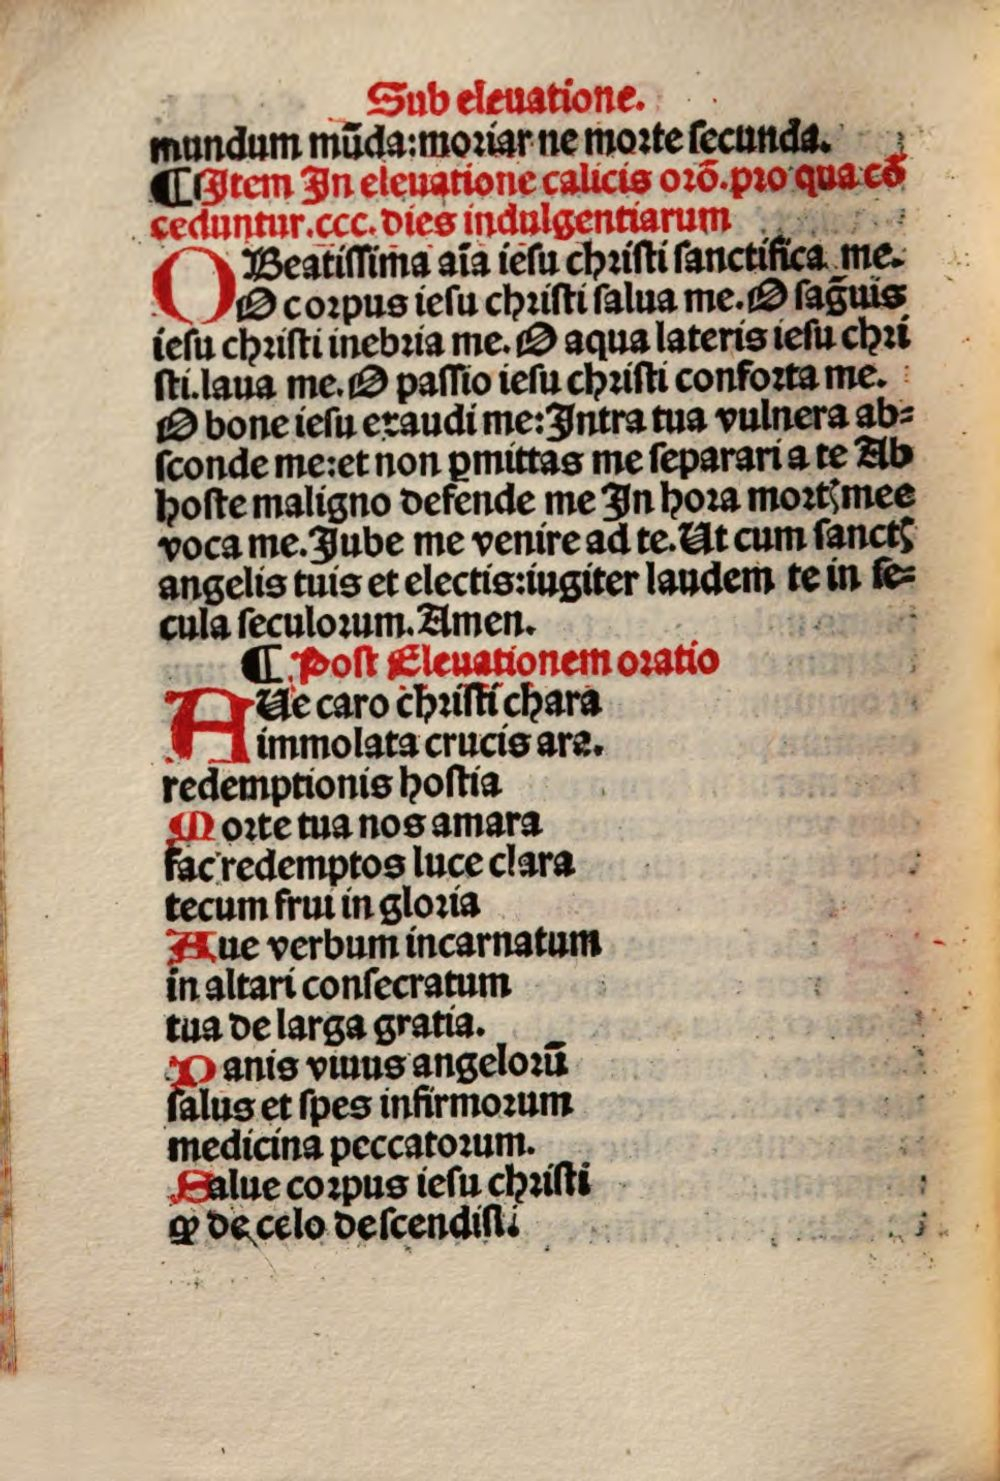 Sub eleuatione.
mundum mūda:moriar ne morte secunda.
¶ Item In eleuatione calicis orō.pro qua cō
ceduntur.ccc. dies indulgentiarum
O Beatissima aīa iesu christi sanctifica me.
O corpus iesu christi salua me. O sāguis
iesu christi inebria me. O aqua lateris iesu chri
sti.laua me. O passio iesu christi conforta me.
O bone iesu exaudi me: Intra tua vulnera ab⸗
sconde me:et non ꝑmittas me separari a te Ab
hoste maligno defende me In hora mortꝭ mee
voca me. Iube me venire ad te. Ut cum sanctꝭ
angelis tuis et electis:iugiter laudem te in se⸗
cula seculorum. Amen.
¶ Post Eleuationem oratio
AUe caro christi chara
immolata crucis ara.
redemptionis hostia
Morte tua nos amara
fac redemptos luce clara
tecum frui in gloria
Aue verbum incarnatum
in altari consecratum
tua de larga gratia.
Panis viuus angelorū
salus et spes infirmorum
medicina peccatorum.
Salue corpus iesu christi
ꝙ de celo descendisti